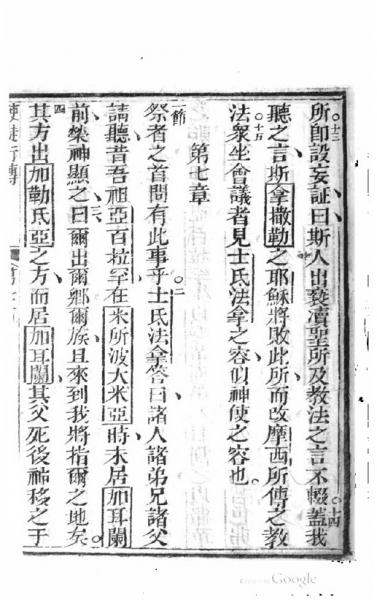 所。十三即設妄証曰斯人出褻瀆聖所及教法之言不輟十四蓋我
聽之言斯拿撒勒之耶穌將敗此所而改摩西所傳之教
法。十五衆坐會議者見士氏法拿之容似神使之容也。
第七章
一節祭者之首問有此事乎。二士氏法拿答曰諸人諸弟兄諸父
請聽昔吾祖亞百拉罕在米所波大米亞時未居加耳蘭
前榮神顯之三曰爾出爾鄉爾族且來到我將指爾之地矣。
四其方出加勒氏亞之方而居加耳蘭其父死後神移之于
使徒行傳
Google